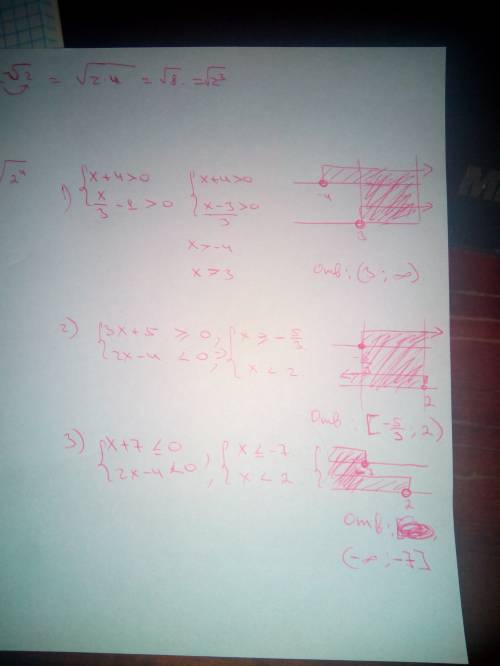 2√2 = √2·4 = √8 = √2³
√2⁴
1) { x+4>0
x/3 - 1 > 0
{ x+4>0
x-3>0 / 3
x>-4
x>3
-4
3
Отв: (3; ∞)
2) { 3x+5 ≥ 0,
2x-4 < 0;
{ x ≥ -5/3
x < 2
2
Отв: [-5/3; 2)
3) { x+7 ≤ 0
2x-4 < 0;
{ x ≤ -7
x < 2
{
2
Отв:
(-∞; -7]